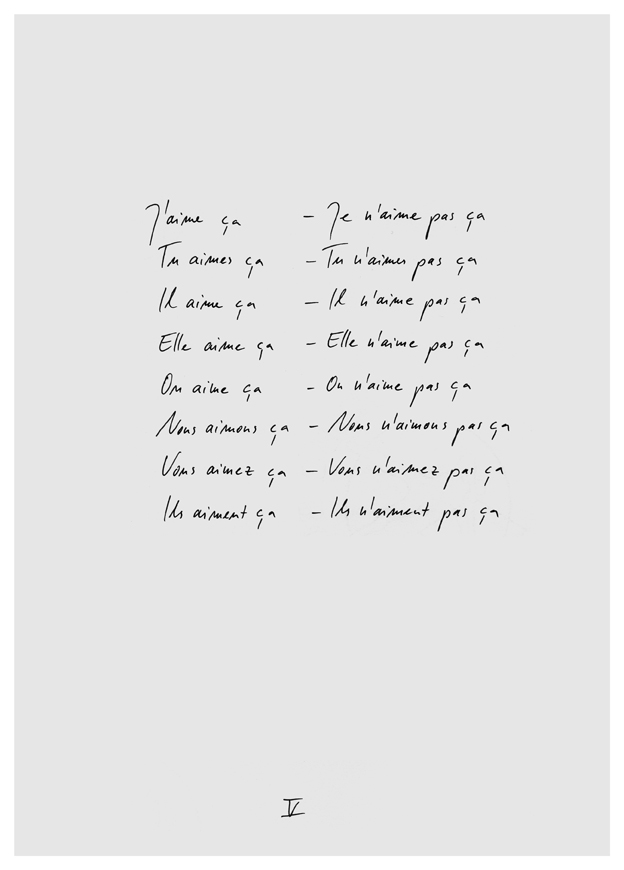 J'aime ça – Je n'aime pas ça
Tu aimes ça – Tu n'aimes pas ça
Il aime ça – Il n'aime pas ça
Elle aime ça – Elle n'aime pas ça
On aime ça – On n'aime pas ça
Nous aimons ça – Nous n'aimons pas ça
Vous aimez ça – Vous n'aimez pas ça
Ils aiment ça – Ils n'aiment pas ça
IV